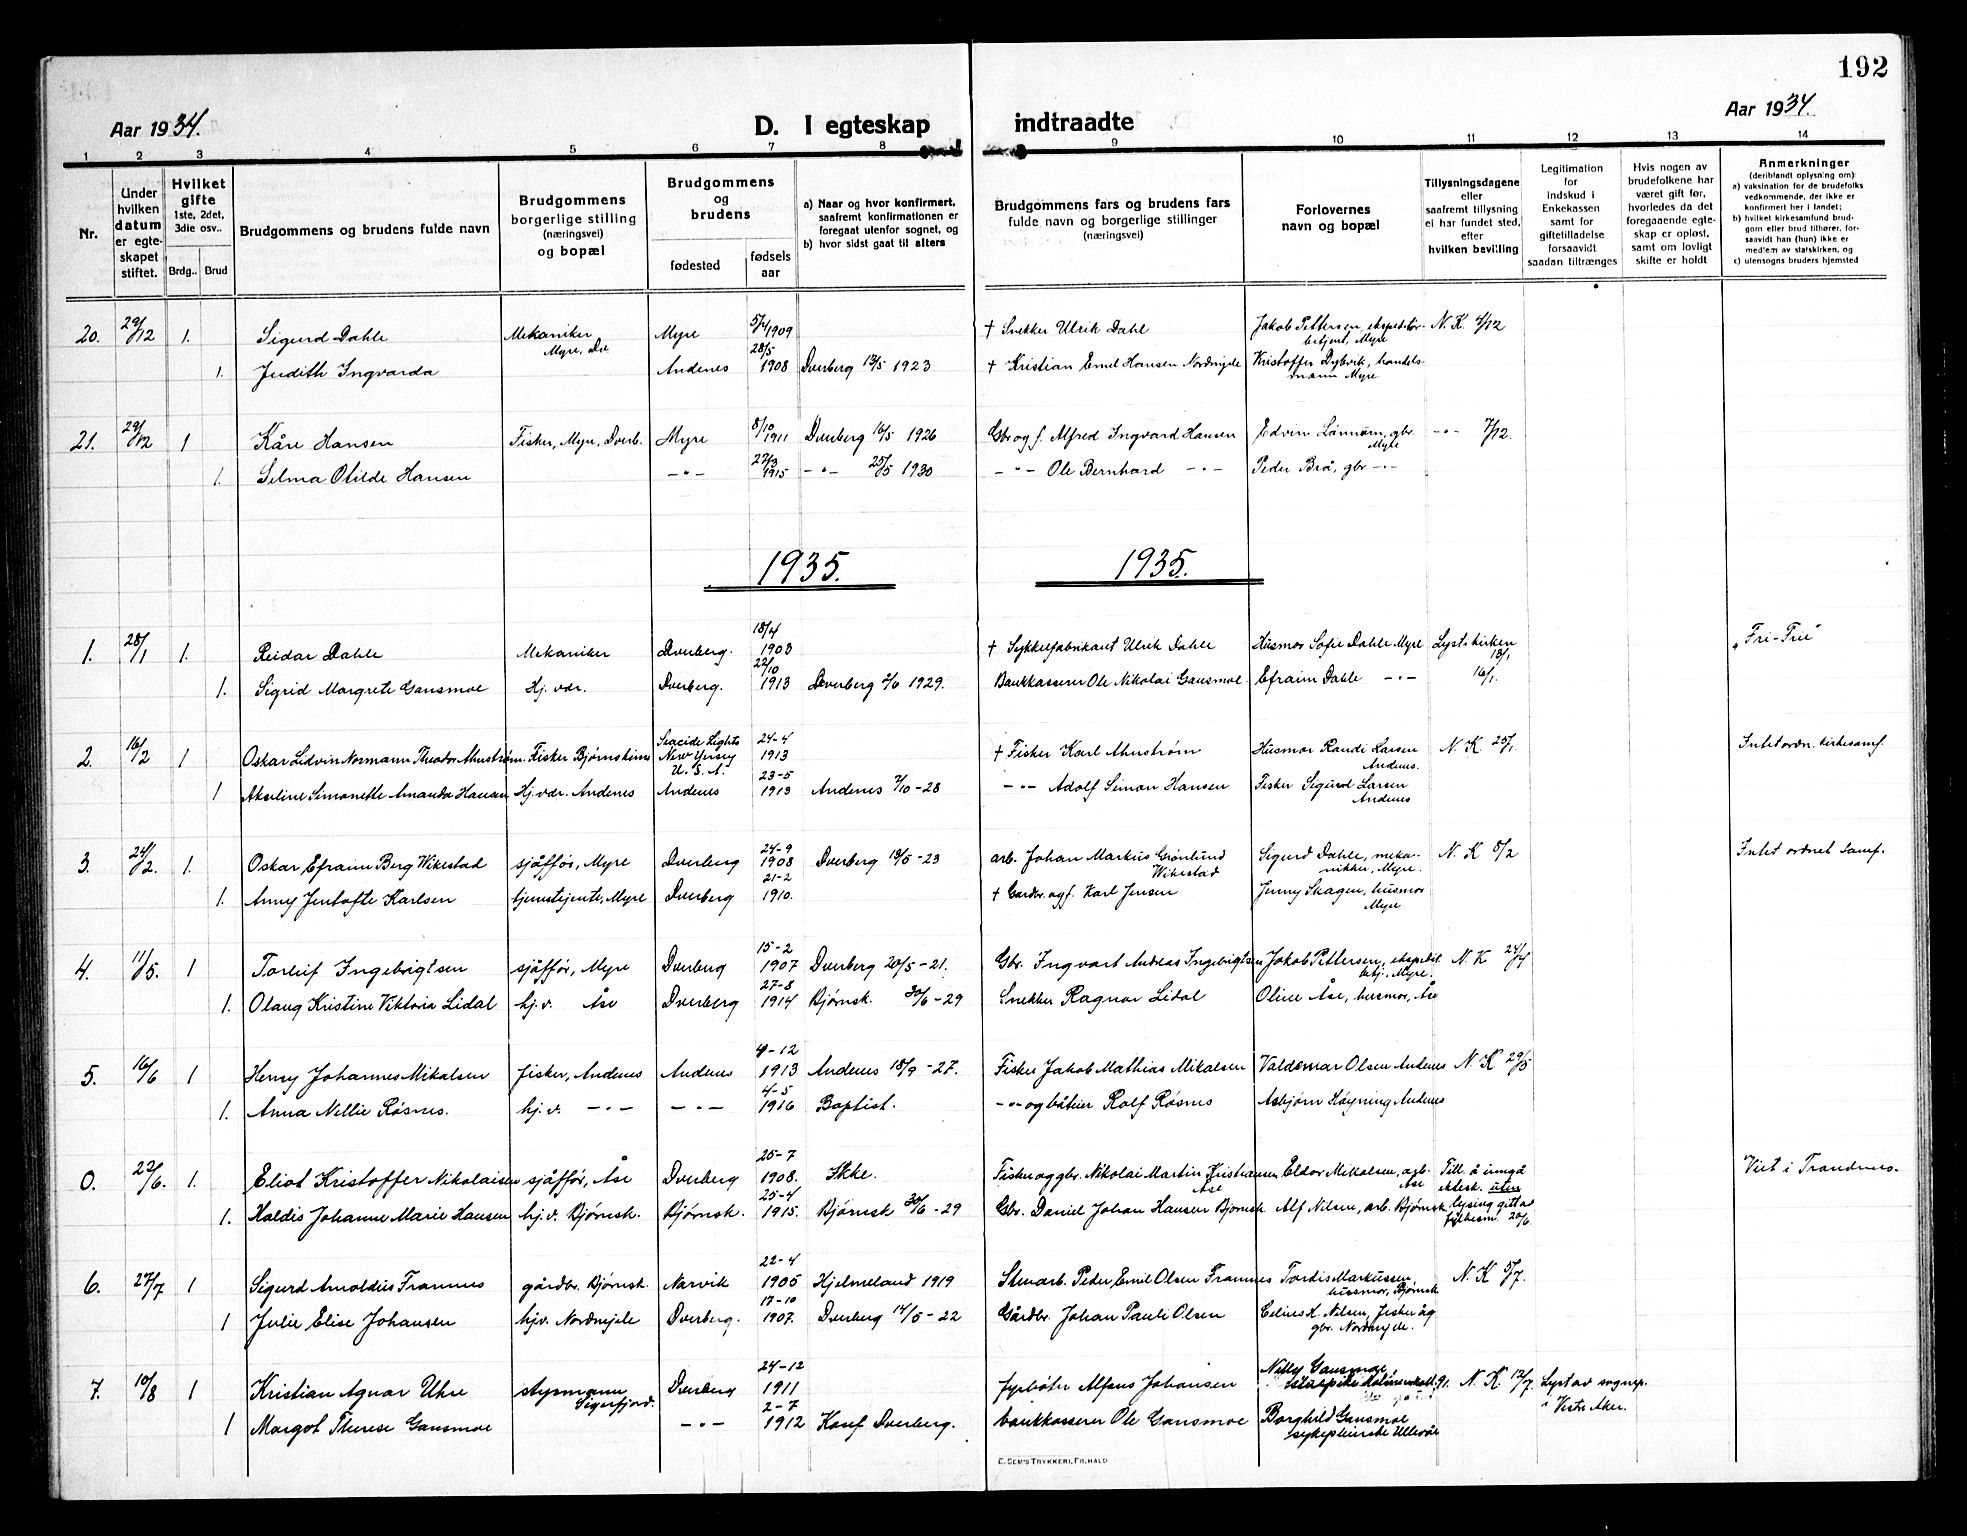 192
Aar 1934.
D. I egteskap indtraadte
Aar 1934.
1 2 3 4 5 6 7 8 9 10 11 12 13 14
Nr.
Under hvilken datum er egteskapet stiftet.
Hvilket gifte 1ste, 2det, 3die osv..
Brdg.. Brud
Brudgommens og brudens fulde navn
Brudgommens borgerlige stilling (næringsvei) og bopæl
Brudgommens og brudens
fødested
fødselsaar
a) Naar og hvor konfirmert, saafremt konfirmationen er foregaat utenfor sognet, og
b) hvor sidst gaat til alters
Brudgommens fars og brudens fars fulde navn og borgerlige stillinger (næringsvei)
Forlovernes navn og bopæl
Tillysningsdagene eller saafremt tillysning ei har fundet sted, efter hvilken bevilling
Legitimation for indskud i Enkekassen samt for giftetilladelse forsaavidt saadan tiltrænges
Hvis nogen av brudefolkene har været gift før, hvorledes da det foregaaende egteskap er opløst, samt om lovligt skifte er holdt
Anmerkninger (deriblandt oplysning om)
a) vaksination for de brudefolks vedkommende, der ikke er konfirmert her i landet;
b) hvilket kirkesamfund brudgom eller brud tilhører, forsaavidt han (hun) ikke er medlem av statskirken, og
c) utensogns bruders hjemsted
20. 29/12 1. Sigurd Dahle Mekaniker Myre, Dv. Myre 5/4 1909 † Snekker Ulrik Dahl Jakob Pettersen, ekspeditørbetjent, Myre N. K. 4/12
1. Judith Ingvarda Andenes 28/5 1908 Dverberg 13/5 1923 † Kristian Emil Hansen Nordmjele Kristoffer Dybvik, handelsmann Myre
21. 29/12 1 Kåre Hansen Fisker, Myre, Dverb. Myre 8/10 1911 Dverberg 16/5 1926 Gbr og f. Alfred Ingvard Hansen Edvin Lønnum, gbr. Myre -"- 7/12.
1. Selma Otilde Hansen -"- 27/3 1915 -"- 25/5 1930 -"- Ole Bernhard -"- Peder Brå, gbr -"-
1935. 1935.
1. 28/1 1. Reidar Dahle Mekaniker Dverberg. 18/4 1903 † Sykkelfabrikant Ulrik Dahle Husmor Sofie Dahle Myre Lyst i kirken 13/1 "Fri-Frie"
1. Sigrid Margrete Gansmoe Hj. vdr. Dverberg. 22/10 1913 Dverberg 2/6 1929. Bankkasserer Ole Nikolai Gansmoe Efraim Dahle -"- 16/1.
2. 16/2 1 Oskar Lidvin Normann Theodor Ahnstrøm. Fisker Bjørnskinn Seacide Lights New Yersey U. S. A. 24-4 1913 † Fisker Karl Ahnstrøm Husmor Randi Larsen Andenes. N. K 25/1 Intet ordn. kirkesamf.
1 Akseline Simonette Amanda Hansen Hj. vdr. Andenes Andenes 23-5 1913 Andenes 7/10-28 -"- Adolf Simon Hansen Fisker Sigurd Larsen Andenes
3. 24/2. 1. Oskar Efraim Berg Wikestad sjåffør, Myre Dverberg 24-9 1903 Dverberg 13/5-23 arb. Johan Markus Grønlund Wikestad Sigurd Dahle, mekanikker, Myre. N. K 5/2 Intet ordnet samf.
1. Anny Jentofte Karlsen tjenestejente, Myre Dverberg 21-2 1910. † Gardbr. og f. Karl Jensen Jenny Skagen, husmor Myre
4. 11/5. 1 Torleif Ingebrigtsen sjåffør, Myre Dverberg 15-2 1907 Dverberg 20/5-21. Gbr. Ingvart Andreas Ingebrigtsen Jakob Pettersen, ekspedit. betj. Myre. N. K 24/4
1. Olaug Kristine Viktoria Lidal hj. v. Åse Dverberg 27-8 1914 Bjørnsk. 30/6-29 Snekker Ragnar Lidal Oline Åse, husmor, Åse
5. 16/6 1 Henry Johannes Mikalsen fisker, Andenes Andenes 4-12 1913 Andenes 18/9-27. Fisker Jakob Mathias Mikalsen Valdemar Olsen Andenes N. K 29/5
1. Anna Nellie Røsnes. hj. v. -"- -"- 4-5 1916 Baptist. -"- og båteier Rolf Røsnes Asbjørn Høyning Andenes
0. 22/6. 1. Eliot Kristoffer Nikolaisen sjåffør, Åse Dverberg 25-7 1908. Ikke. Fisker og gbr. Nikolai Martin Kristiansen Åse Eldor Mikalsen, arb. Åse Till. å inngå ektesk. uten Viet i Trondenes.
1. Haldis Johanne Marie Hansen hj. v. Bjørnsk. Bjørnsk. 25-4 1915. Bjørnsk 30/6-29 Gbr. Daniel Johan Hansen Bjørnsk Alf Nilsen, arb. Bjørnsk lysing gitt av fylkesm. 20/6
6. 27/7 1 Sigurd Arnoldus Framnes gårdbr. Bjørnsk. Narvik 22-4 1905 Hjelmeland 1919 Stenarb. Peder Emil Olsen Framnes Tordis Markussen, husmor, Bjørnsk N. K 5/7.
1 Julie Elise Johansen hjv. Nordmjele Dverberg. 17-10 1907. Dverberg 14/5-22 Gårdbr. Johan Pauli Olsen Celius K. Nilsen, fisker og gbr. Nordmjele.
7. 10/8 1 Kristian Agnar Uhre styrmann Sigerfjord. Dverberg 24-12 1911 fyrbøter Alfons Johansen Nelly Gansmoe N. K. 12/7 Lyst av sognep. i Vestre Aker.
1 Margot Therese Gansmoe -"- 2-7 1912 Konf Dverberg. bankkasserer Ole Gansmoe Borghild Gansmoe sykepleierske Ullevål
E. SEM'S TRYKKERI, FR.HALD